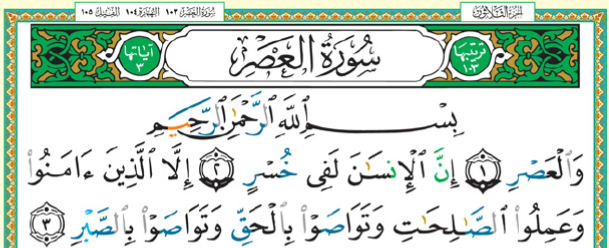 سُورَةُ العَصْرِ ١٠٣ الهُمَزَة ١٠٤ الفِيل ١٠٥
الجزء الثلاثون
ترتيبها ١٠٣
سُورَةُ العَصْرِ
آياتها ٣
بِسْمِ ٱللَّهِ ٱلرَّحْمَٰنِ ٱلرَّحِيمِ
وَٱلْعَصْرِ ١ إِنَّ ٱلْإِنسَٰنَ لَفِى خُسْرٍ ٢ إِلَّا ٱلَّذِينَ ءَامَنُوا۟
وَعَمِلُوا۟ ٱلصَّٰلِحَٰتِ وَتَوَاصَوْا۟ بِٱلْحَقِّ وَتَوَاصَوْا۟ بِٱلصَّبْرِ ٣